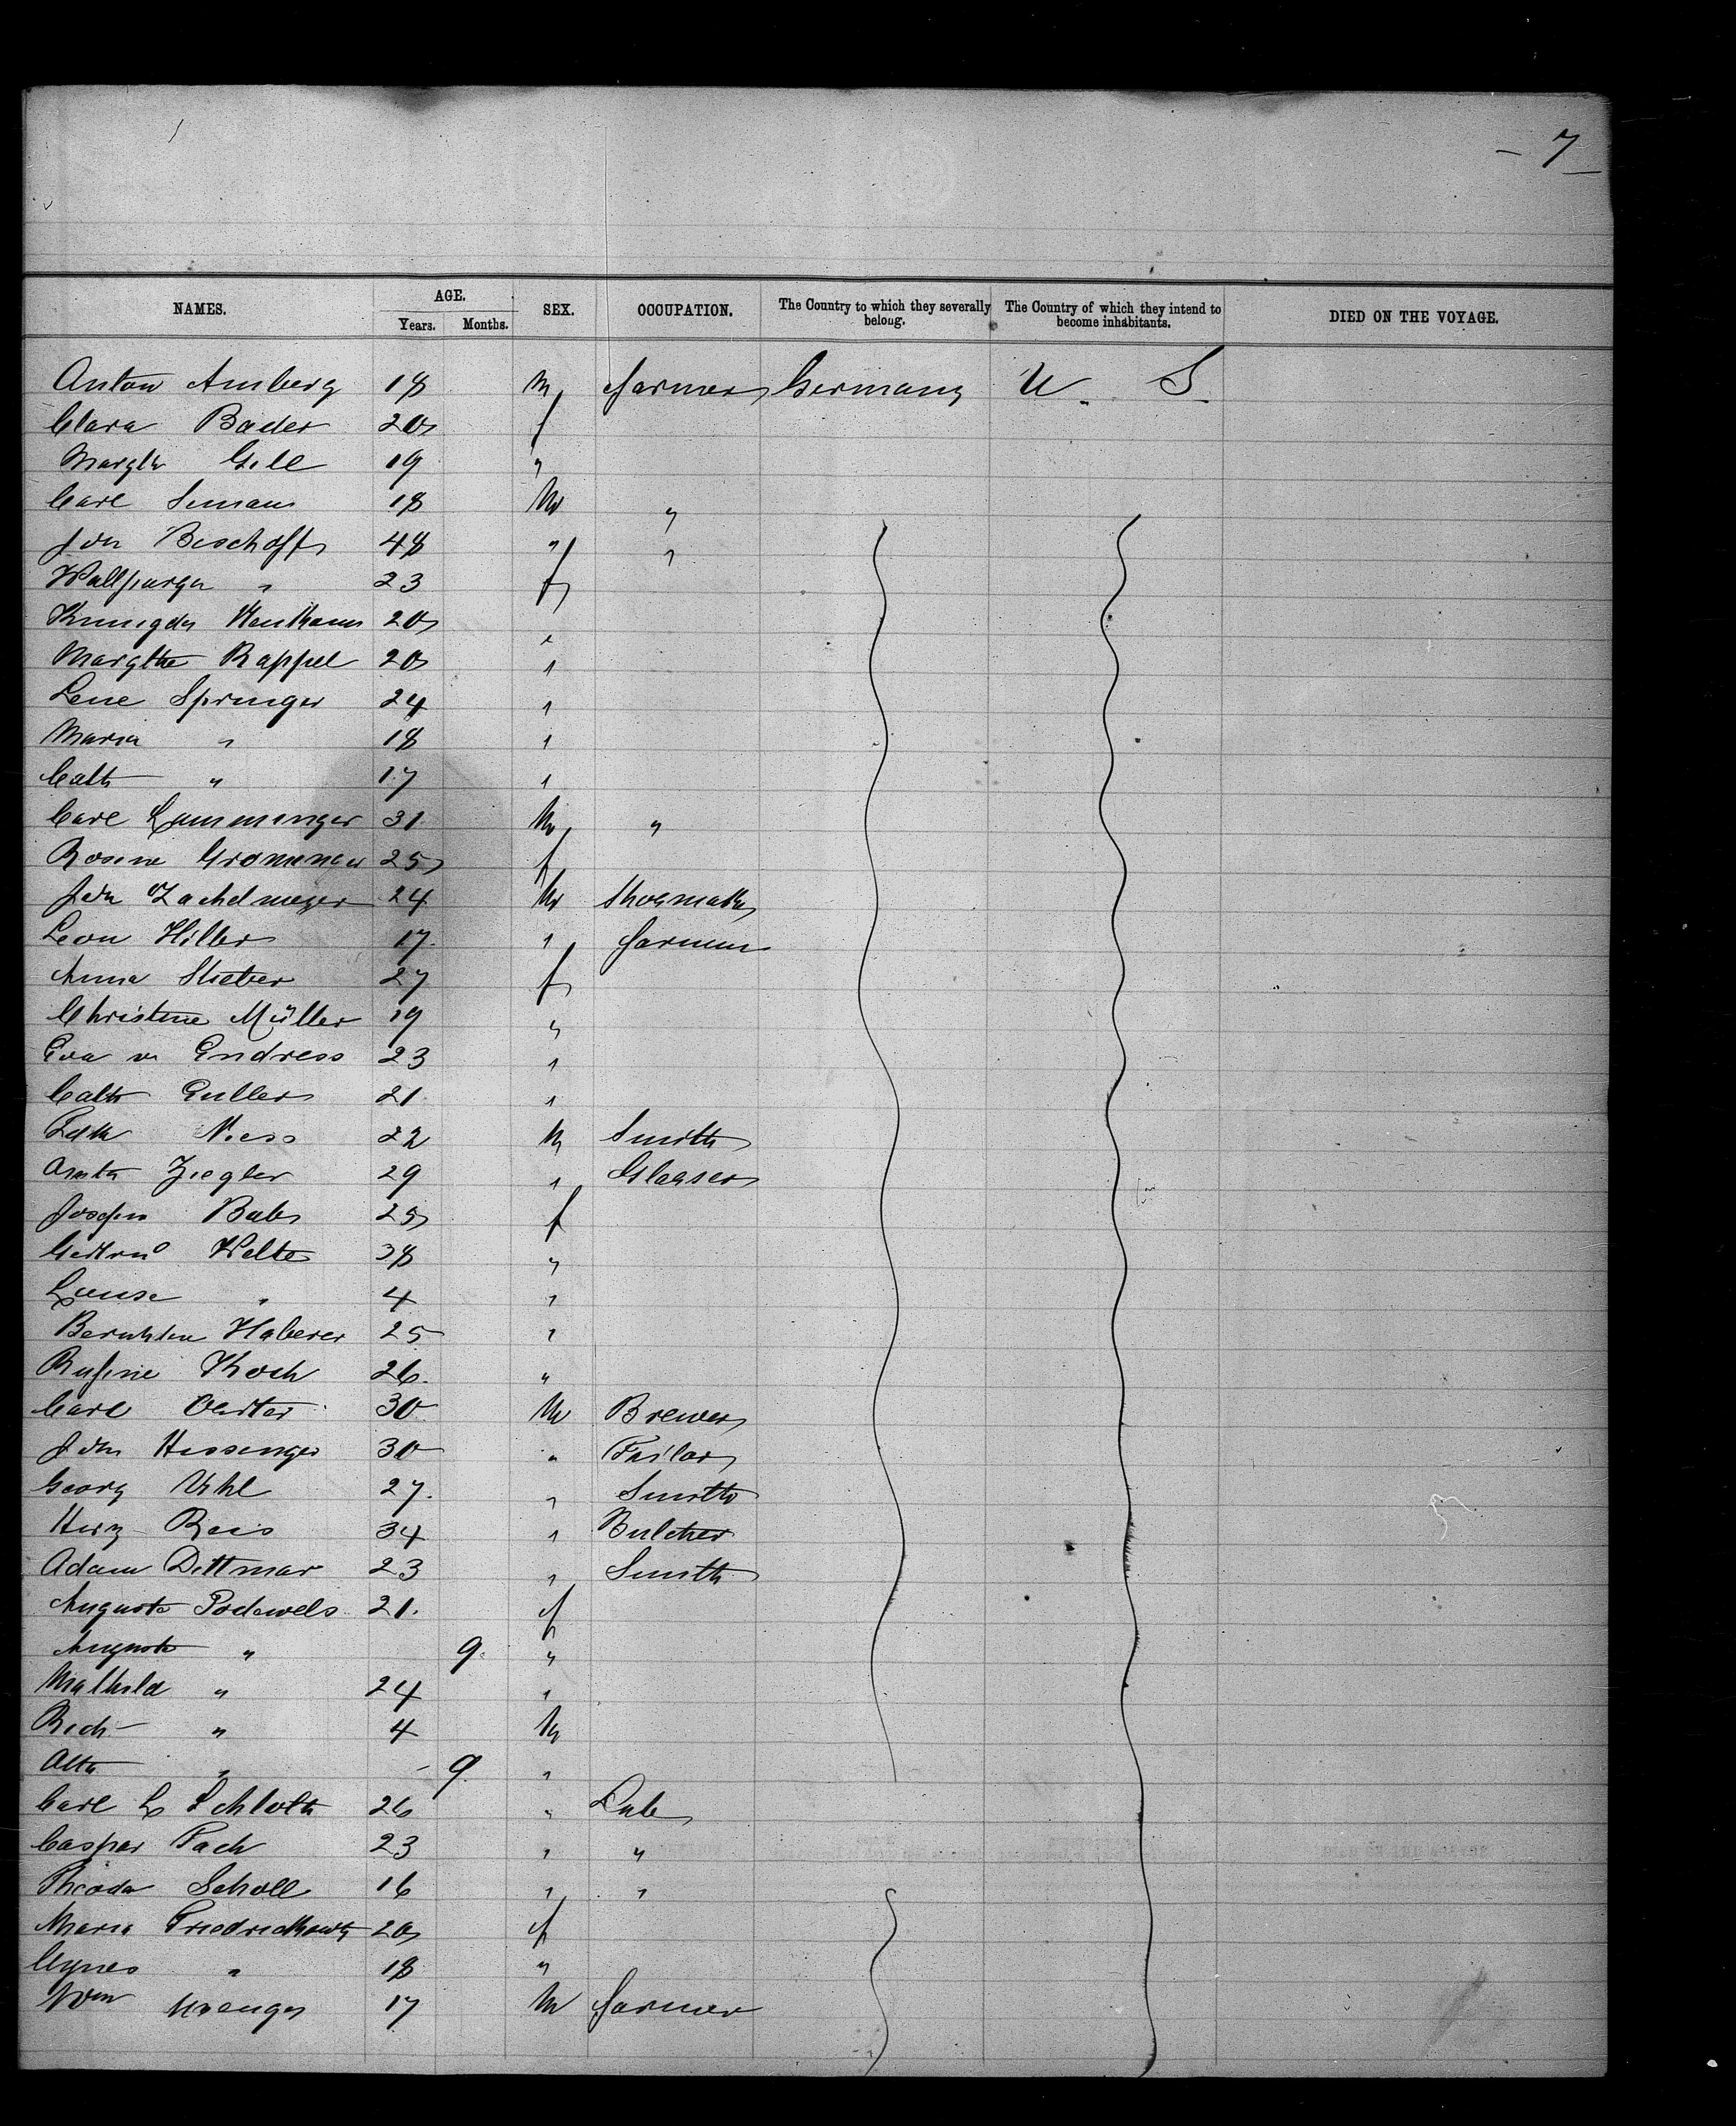 - 7 -
NAMES. AGE. SEX. OCCUPATION. The Country to which they severally belong. The Country of which they intend to become inhabitants. DIED ON THE VOYAGE.
Years. Months.
Anton Amberg 18 m farmer Germany U. S.
Clara Bader 20 f
Margth Gell 19 "
Carl 18 M "
Joh Bischoff 48 " "
Wallpurga " 23 f
20 "
Margthe Rappel 20 "
Lene Springer 24 "
Maria " 18 "
Cath " 17 "
Carl Lamminger 31 M "
Rosine Grominger 25 f
Joh Zachelmeyer 24 M
Leon Hiller 17 " farmer
Anna Stieber 27 f
Christine Müller 19 "
Eva v Endress 23 "
Cath Euller 21 "
Niess 22 M Smith
Anth Ziegler 29 " Glaaser
Josefin Bub 25 f
Welte 38 "
Louise " 4 "
Haberer 25 "
Rufine Koch 26 "
Carl 30 M Brewer
Joh Hessinger 30 " Tailor
Georg Uhl 27 " Smith
Herz Reis 34 " Butcher
Adam Dittmar 23 " Smith
Auguste Podewels 21 f
Auguste " 9 "
Mathild " 24 "
Rich " 4 M
Otto " - 9 "
Carl L Schloth 26 " Lab
Caspar Fach 23 " "
Theodor Scholl 16 " "
Maria 20 f
Agnes " 18 "
Wm 17 M farmer